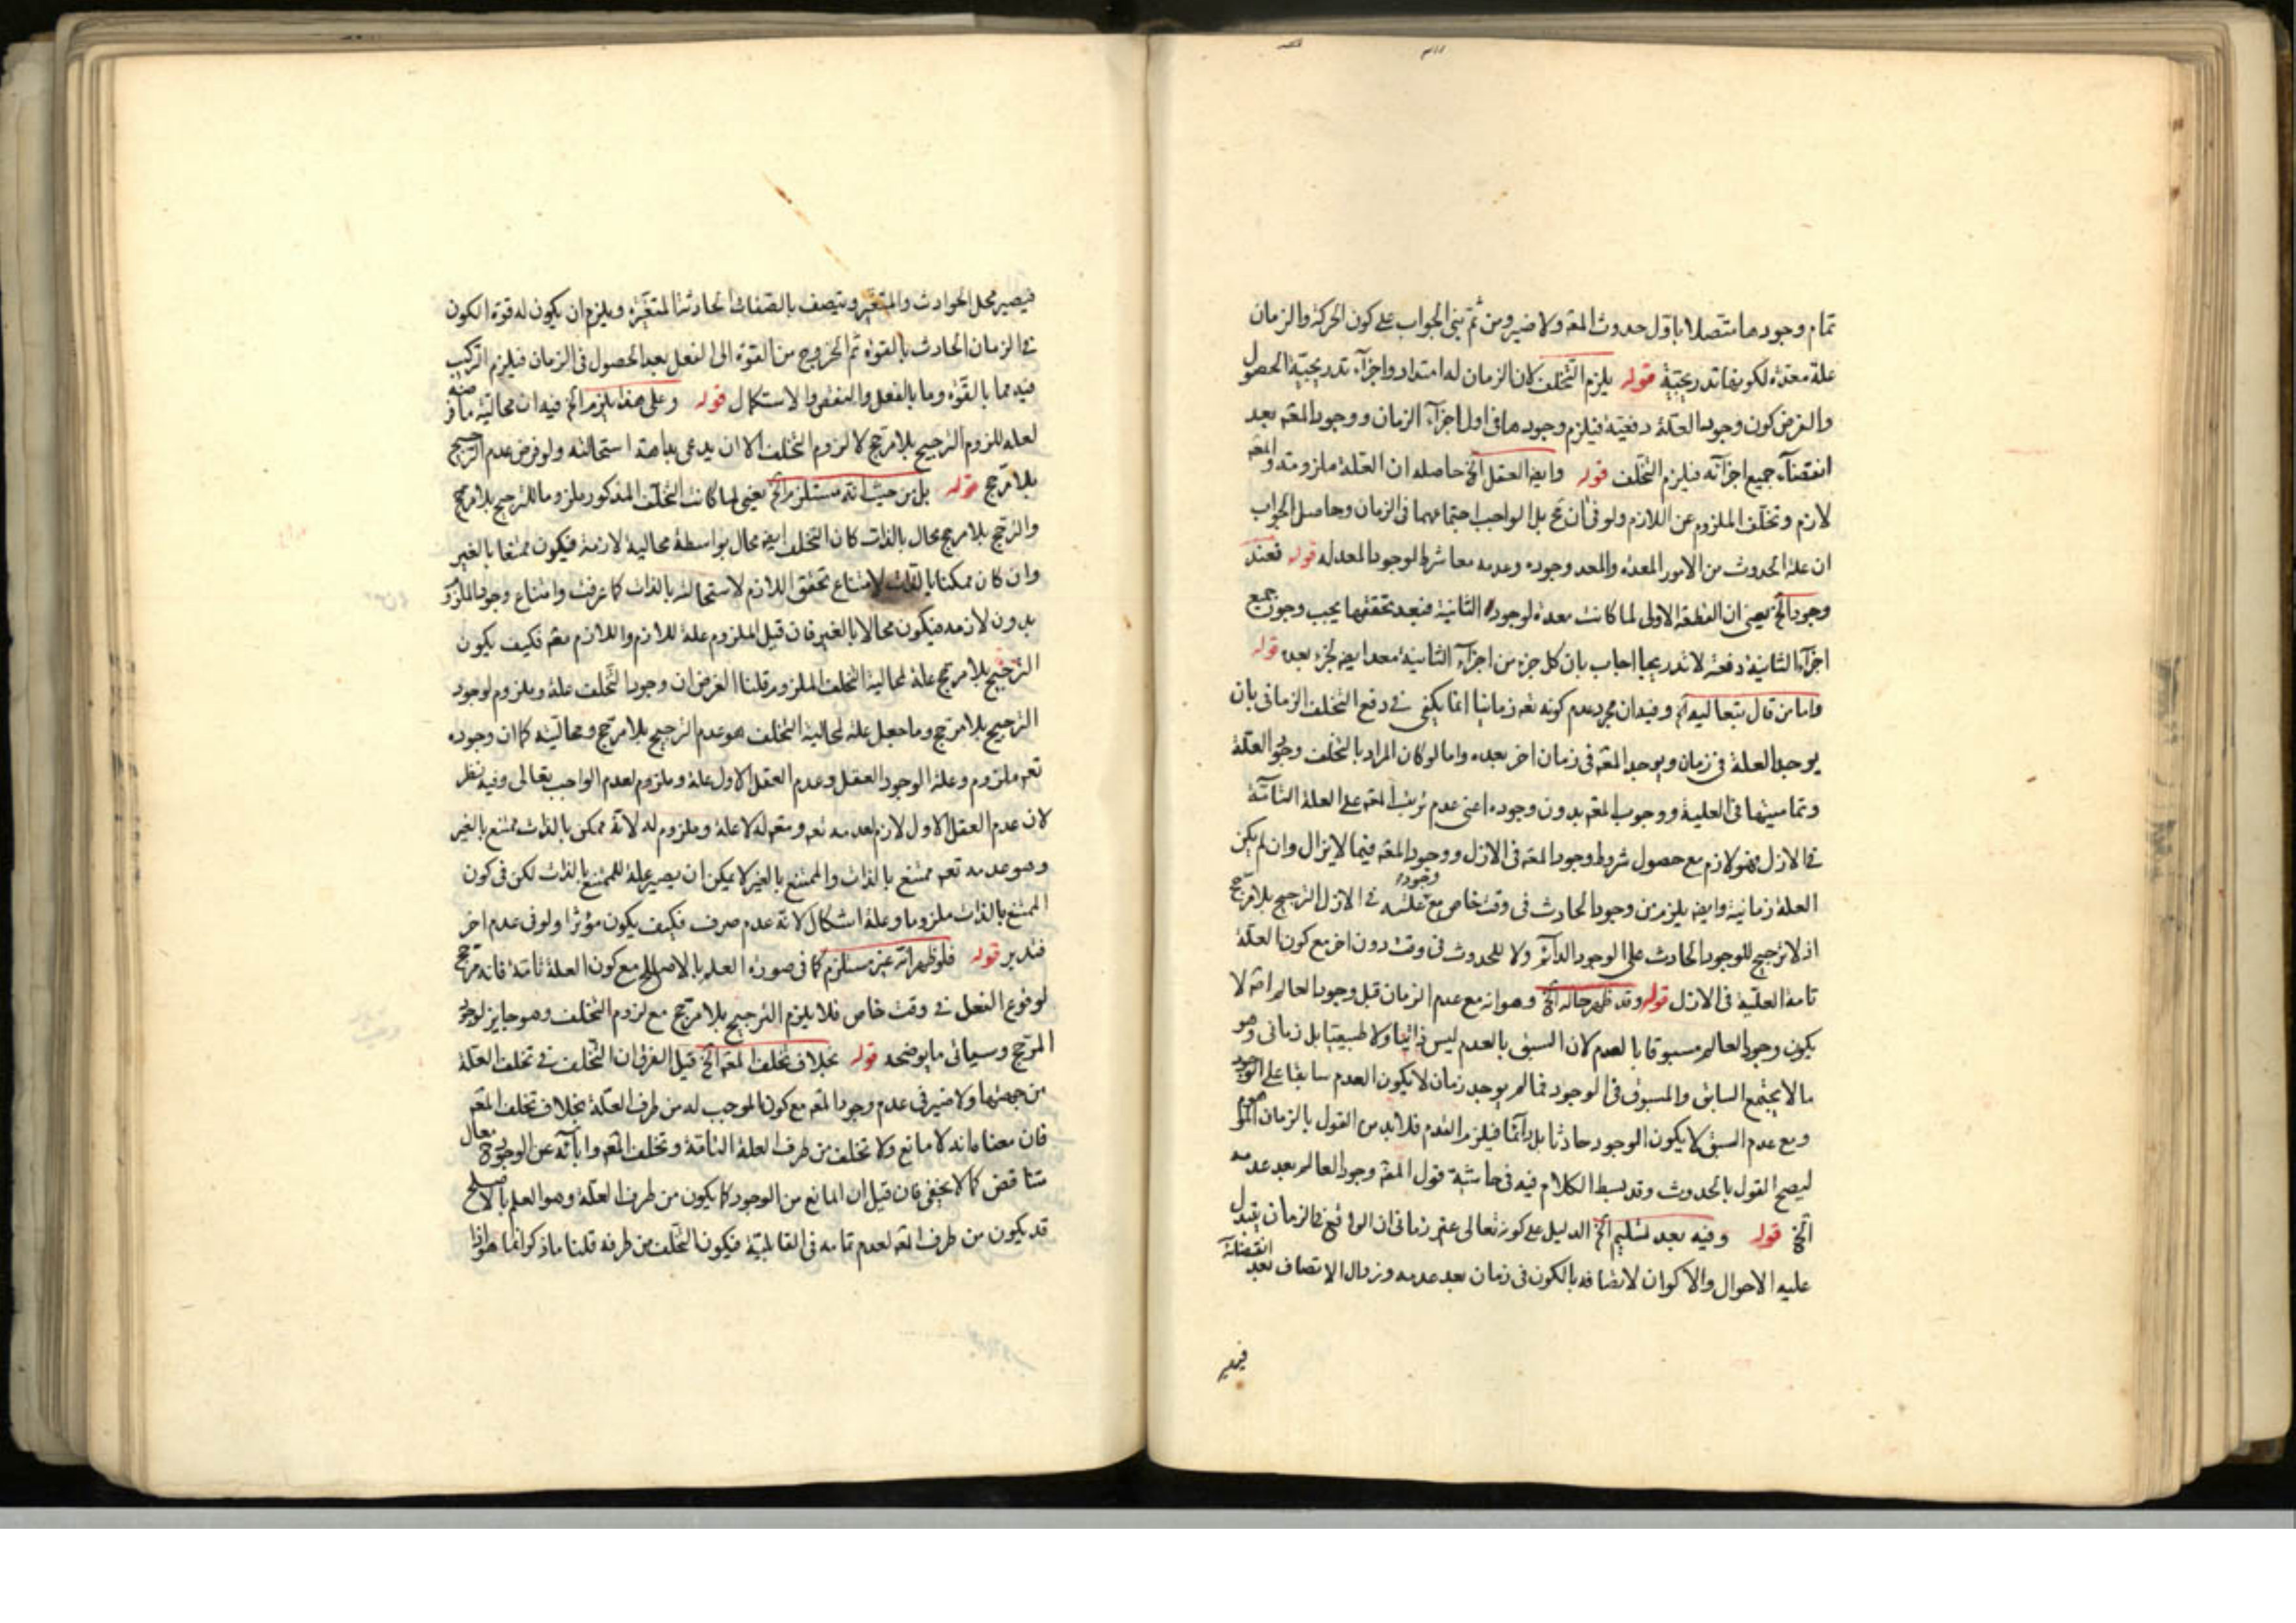 تمام وجودها متصلا باول حدوث المعه ولا ضير ومن ثم بنى الجواب على كون الحركة والزمان
علة معدة لكونهما تدريجية قوله يلزم التخلف لان الزمان له امتداد واجزآء تدريجية الحصول
والفرض كون وجود العلة دفعية فيلزم وجودها فى اول اجزآء الزمان ووجود المعه بعد
انقضآء جميع اجزآئه فيلزم التخلف قوله وايضا العقل الخ حاصله ان العلة ملزومة والمعه
لازم وتخلف الملزوم عن اللازم ولو فى آن مح بل الواجب اجتماعهما فى الزمان وحاصل الجواب
ان علة الحدوث من الامور المعدة والمعد وجوده وعدمه معا شرط لوجود المعد له قوله فعند
وجود الخ يعنى ان القطعة الاولى لما كانت معدة لوجود الثانية فبعد تحققها يجب وجود جميع
اجزآء الثانية دفعة لا تدريجا اجاب بان كل جزء من اجزآء الثانية معد ايضا لجزء بعده قوله
واما من قال بتعاليه الخ وفيه ان مجرد عدم كونه تعه زمانيا انما يكفى فى دفع التخلف الزمانى بان
يوجد العلة فى زمان ويوجد المعه فى زمان اخر بعده واما لو كان المراد بالتخلف وجود العلة
وتماميتها فى العلية ووجوب المعه بدون وجوده اعنى عدم ترتب المعه على العلة التآمة
فى الازل فهو لازم مع حصول شروط وجود المعه فى الازل ووجود المعه فيما لا يزال وان لم يكن
العلة زمانية وايضا يلزم من وجود الحادث فى وقت خاص مع وجود علته فى الازل الترجيح بلا مرجح
اذ لا ترجيح للوجود الحادث على الوجود الدآئم ولا للحدوث فى وقت دون اخر مع كون العلة
تامة العلية فى الازل قوله وقد ظهر حاله الخ وهو انه مع عدم الزمان قبل وجود العالم اصلا
يكون وجود العالم مسبوقا بالعدم لان السبق بالعدم ليس ذاتيا ولا طبيعيا بل زمانى وهو
ما لا يجتمع السابق والمسبوق فى الوجود فما لم يوجد زمان لا يكون العدم سابقا على الوجود
ومع عدم السبق لا يكون الوجود حادثا بل دآئما فيلزم القدم فلا بد من القول بالزمان الموهوم
ليصح القول بالحدوث وقد بسط الكلام فيه فى حاشية قول المعه وجود العالم بعد عدمه
الخ قوله وفيه بعد تسليم الخ الدليل على كونه تعالى غير زمانى ان الواقع فى الزمان يتبدل
عليه الاحوال والاكوان لاتصافه بالكون فى زمان بعد عدمه وزوال الاتصاف بعد انقضائه
فيصير
فيصير محل الحوادث والمتغير ويتصف بالصفات الحادثة المتغيرة ويلزم ان يكون له قوة الكون
فى الزمان الحادث بالقوة ثم الخروج من القوة الى الفعل بعد الحصول فى الزمان فيلزم التركيب
فيه مما بالقوة وما بالفعل والنقص والاستكمال قوله وعلى هذا يلزم الخ فيه ان محالية ما فرضه
لعله للزوم الترجيح بلا مرجح لا لزوم التخلف الا ان يدعى بداهة استحالته ولو فرض عدم الترجيح
بلا مرجح قوله بل من حيث انه مستلزم الخ يعنى لما كانت التخلف المذكور ملزوما للترجيح بلا مرجح
والترجح بلا مرجح محال بالذات كان التخلف ايضا محال بواسطة محالية لازمه فيكون ممتنعا بالغير
وان كان ممكنا بالذات لامتناع تحقق اللازم لاستحالته بالذات كما عرفت وامتناع وجود الملزوم
بدون لازمه فيكون محالا بالغير فان قيل الملزوم علة للازم واللازم معه فكيف يكون
الترجيح بلا مرجح علة لمحالية التخلف الملزوم قلنا الغرض ان وجود التخلف علة وملزوم لوجود
الترجيح بلا مرجح وما جعل علة لمحالية التخلف هو عدم الترجيح بلا مرجح ومحاليته كما ان وجوده
تعه ملزوم وعلة الوجود العقل وعدم العقل الاول علة وملزوم لعدم الواجب تعالى وفيه نظر
لان عدم العقل الاول لازم لعدمه تعه ومعه له لا علة وملزوم له لانه ممكن بالذات ممتنع بالغير
وهو عدمه تعه ممتنع بالذات والممتنع بالغير لا يمكن ان يصير علة للممتنع بالذات لكن فى كون
الممتنع بالذات ملزوما وعلة اشكال لانه عدم صرف فكيف يكون مؤثرا ولو فى عدم اخر
فتدبر قوله فلو ظهر انه غير مستلزم كما فى صورة العلم بالاصلح مع كون العلة تامة فانه مرجح
لوقوع الفعل فى وقت خاص فلا يلزم الترجيح بلا مرجح مع لزوم التخلف وهو جايز لوجود
المرجح وسياتى ما يوضحه قوله بخلاف تخلف المعه الخ قيل الفرق ان التخلف فى تخلف العلة
من جهتها ولا ضير فى عدم وجود المعه مع كون الموجب له من طرف العلة بخلاف تخلف المعه
فان معناه انه لا مانع ولا تخلف من طرف العلة التامة وتخلف المعه وابآئه عن الوجود ح محال
متناقض كما لا يخفى فان قيل ان المانع من الوجود كما يكون من طرف العلة وهو العلم بالاصلح
قد يكون من طرف المعه لعدم تمامه فى القابلية فيكون التخلف من طرفه قلنا ما ذكر انما هو اذا